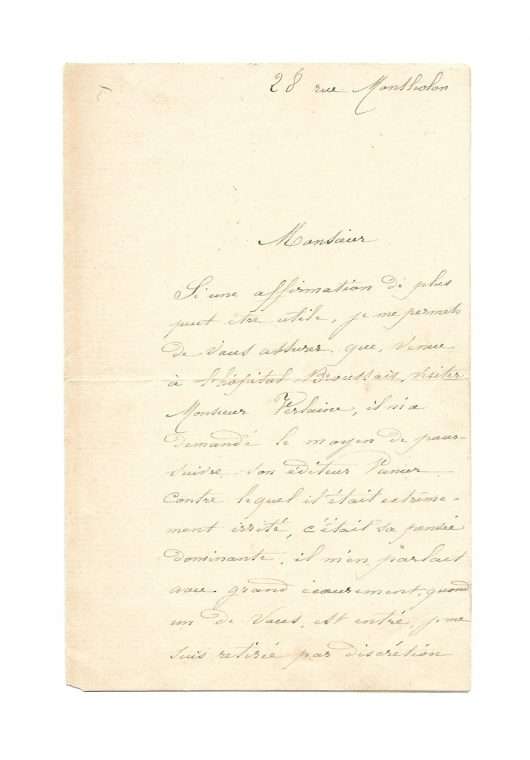 28 rue Montholon
Monsieur
Si une affirmation de plus
peut être utile, je me permets
de vous assurer que, venue
à l'hôpital Broussais, visiter
Monsieur Verlaine, il m'a
demandé le moyen de pour-
suivre son éditeur Vanier
contre lequel il était extrême-
ment irrité, c'était sa pensée
dominante. il m'en parlait
avec grand écœurement, quand
un de vous, est entré, je me
suis retirée par discrétion